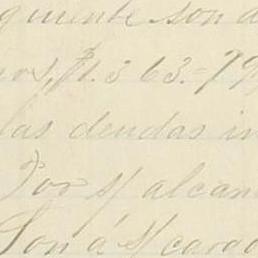 quiente son d
nos, $1.363.-79
las deudas in
Por s/ alcan
Son á s/ cargo